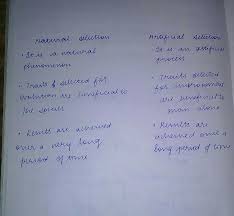 Natural selection
• It is a natural
phenomenon
• Traits selected for
evolution are beneficial to
the species
• Results are achieved
over a very long
period of time
Artificial selection
• It is an artificial
process
• Traits selected
for improvement
are beneficial to
man alone
• Results are
achieved over a
long period of time